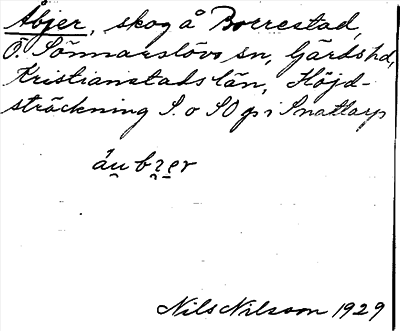 Åbjer, skog å Borrestad,
Ö. Sönnarslövs sn, Gärds hd,
Kristianstads län, Höjd-
sträckning S. o SO p i Snattarp
Nils Nilsson 1929